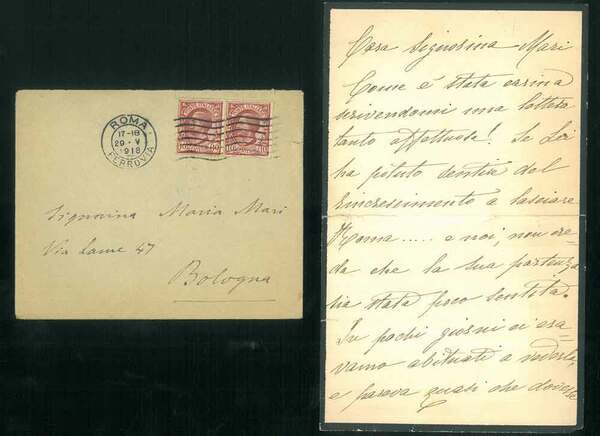 ROMA
17-18
29·V
918
FERROVIA
POSTE ITALIANE
POSTE ITALIANE
Signorina Maria Mari
Via Lame 47
Bologna
Cara Signorina Mari
Come è stata carina
scrivendomi una lettera
tanto affettuosa! Se Lei
ha potuto sentire del
rincrescimento a lasciare
Roma..... e noi, non cre-
da che la sua partenza
sia stata poco sentita.
In pochi giorni ci era-
vamo abituati a vederla,
e pareva quasi che dovesse